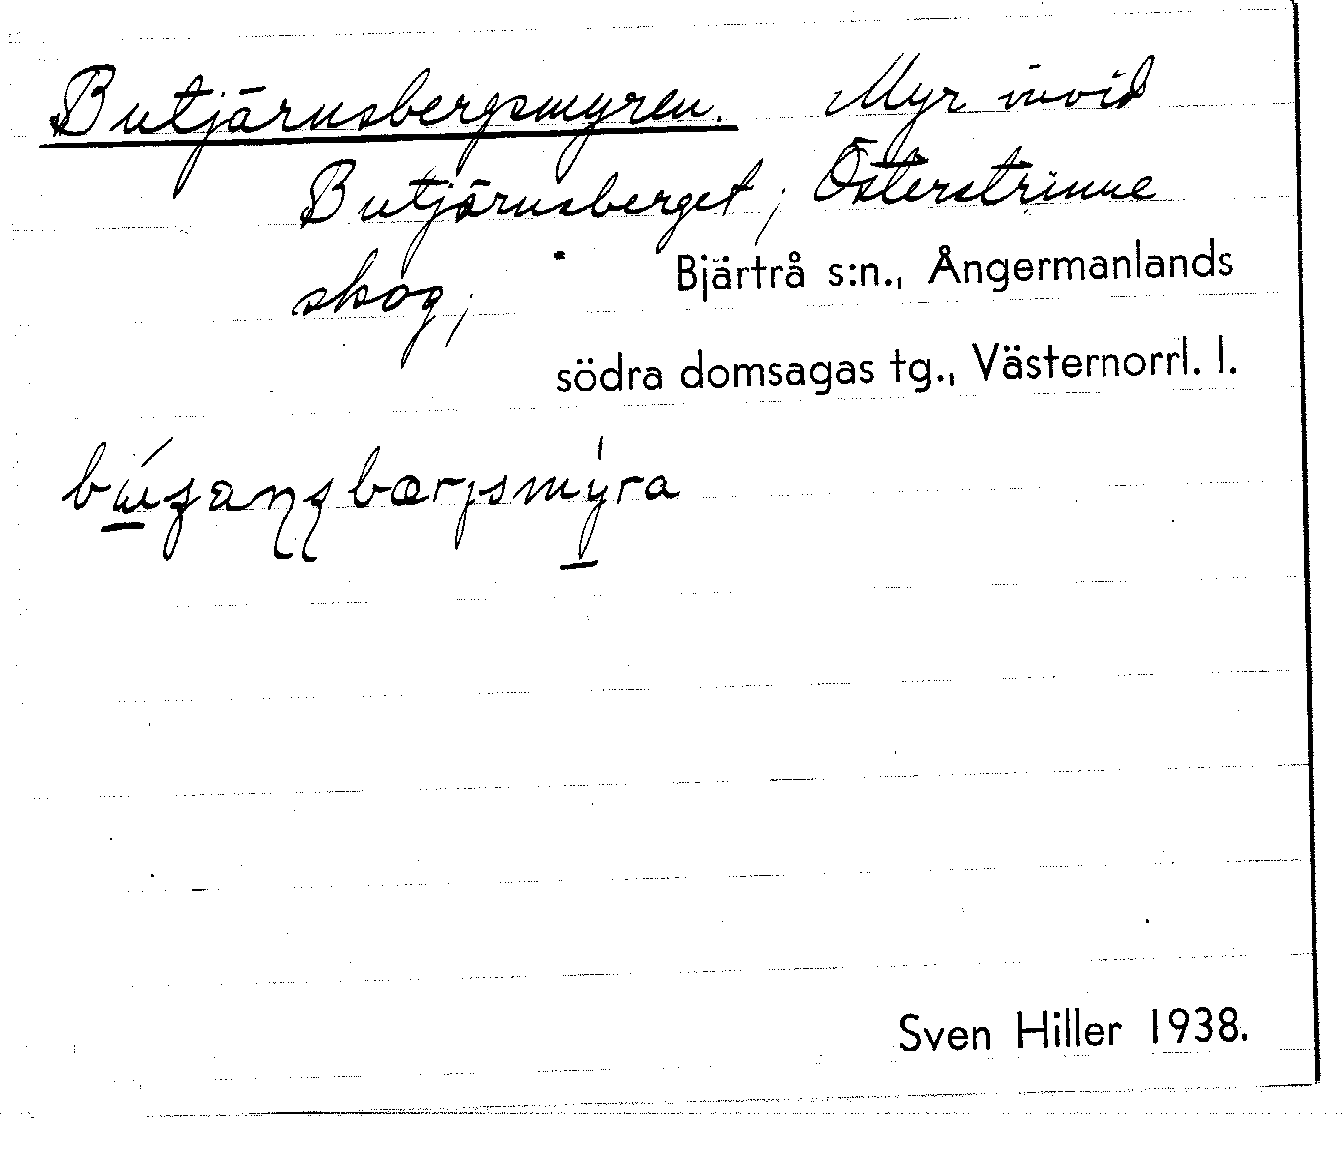 Butjärnsbergsmyren. Myr invid
Butjärnsberget, Österstrinne
skog,
Bjärtrå s:n., Ångermanlands
södra domsagas tg., Västernorrl. l.
Sven Hiller 1938.